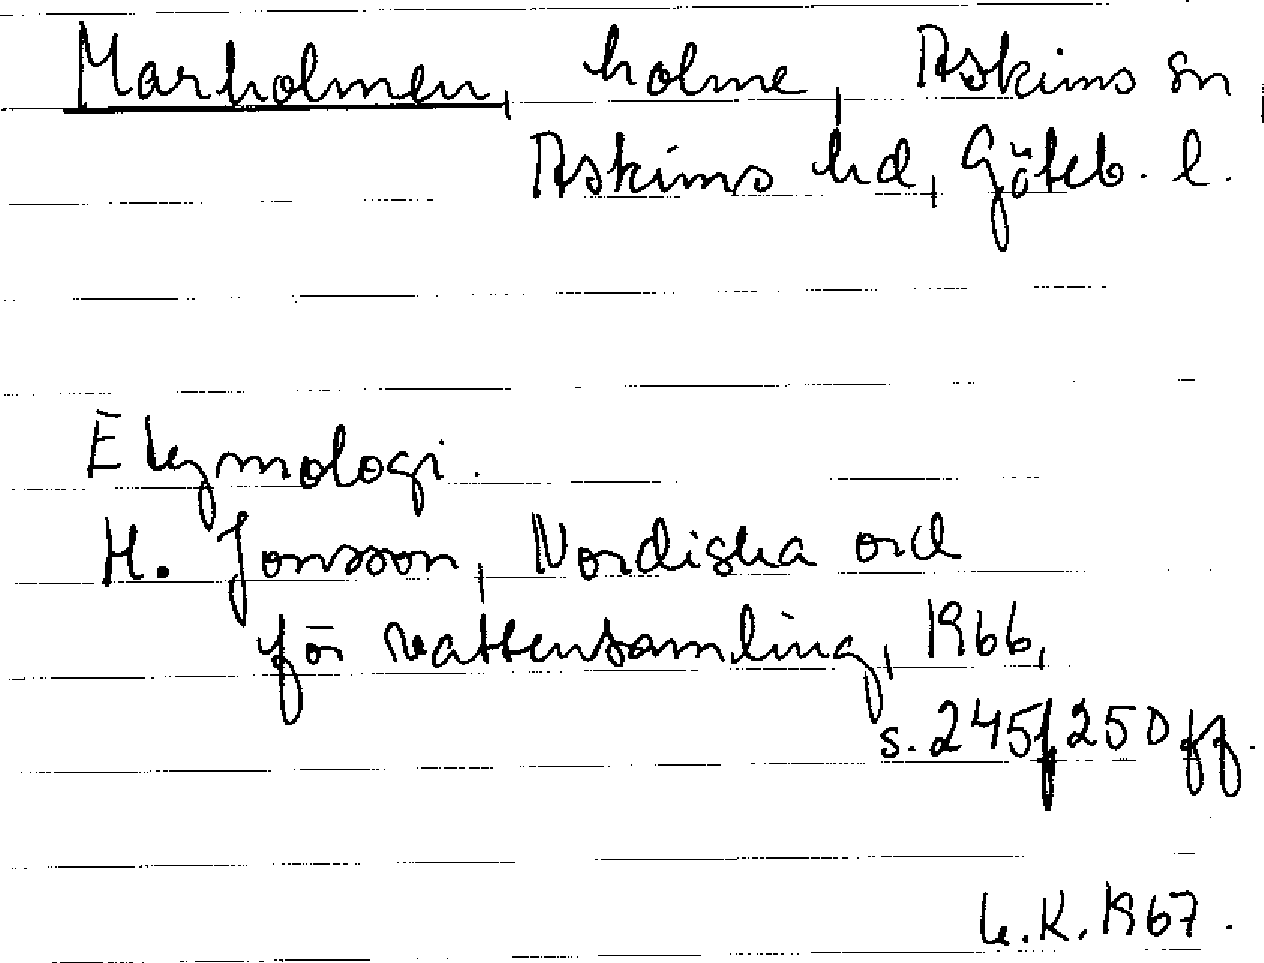 Marholmen, holme, Askims sn,
Askims hd, Göteb. l.
Etymologi.
H. Jonsson, Nordiska ord
för vattensamling, 1966,
s. 245f, 250 ff.
K. 1967.